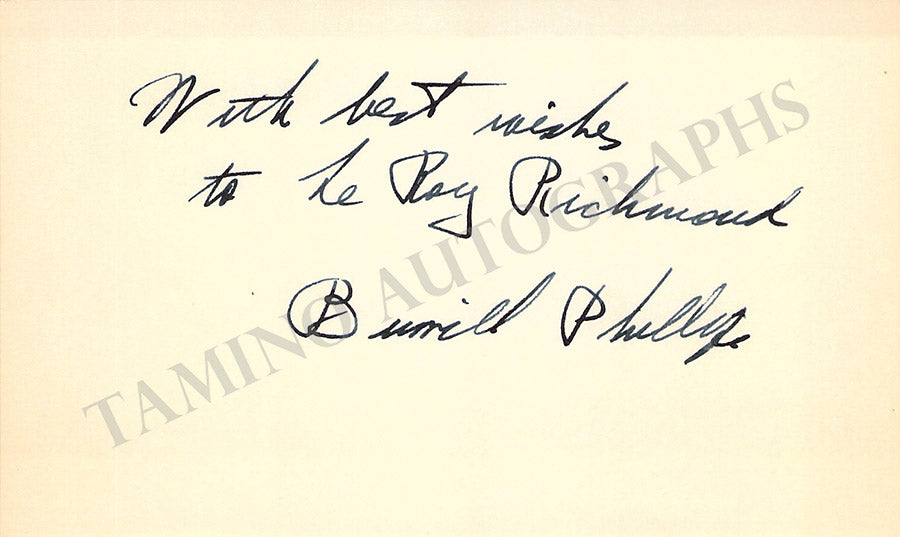 With best wishes
to Le Roy Richmond
Burrill Phillips
TAMINO AUTOGRAPHS